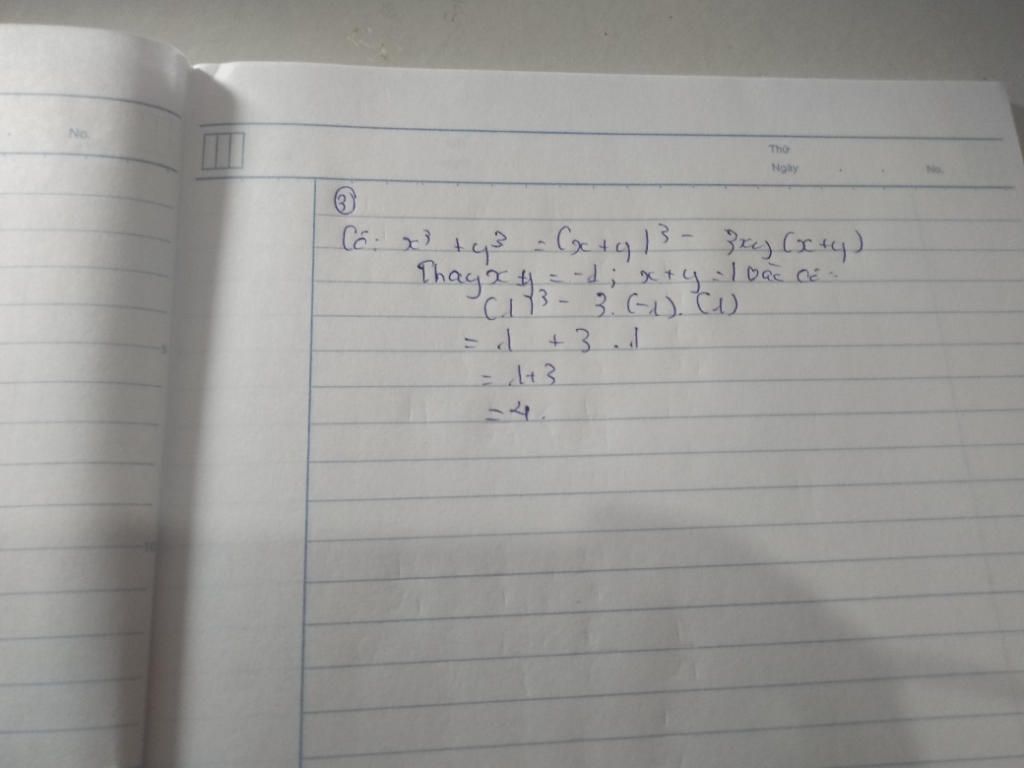 No.
Thứ
Ngày . . No.
③
Có: x³ + y³ = (x+y)³ - 3xy(x+y)
Thay x y = -1; x+y = 1 có:
(1)³ - 3.(-1).(1)
= 1 + 3 . 1
= 1+3
= 4.
5
10